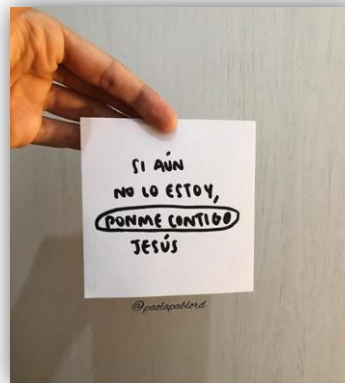 SI AÚN
NO LO ESTOY,
PONME CONTIGO
JESÚS
@paolapablord